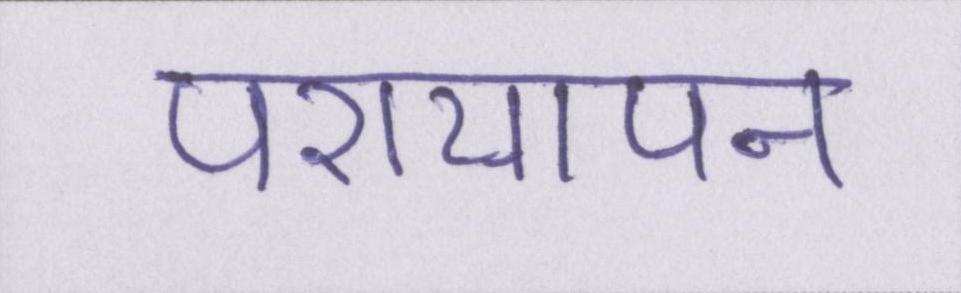 परायापन